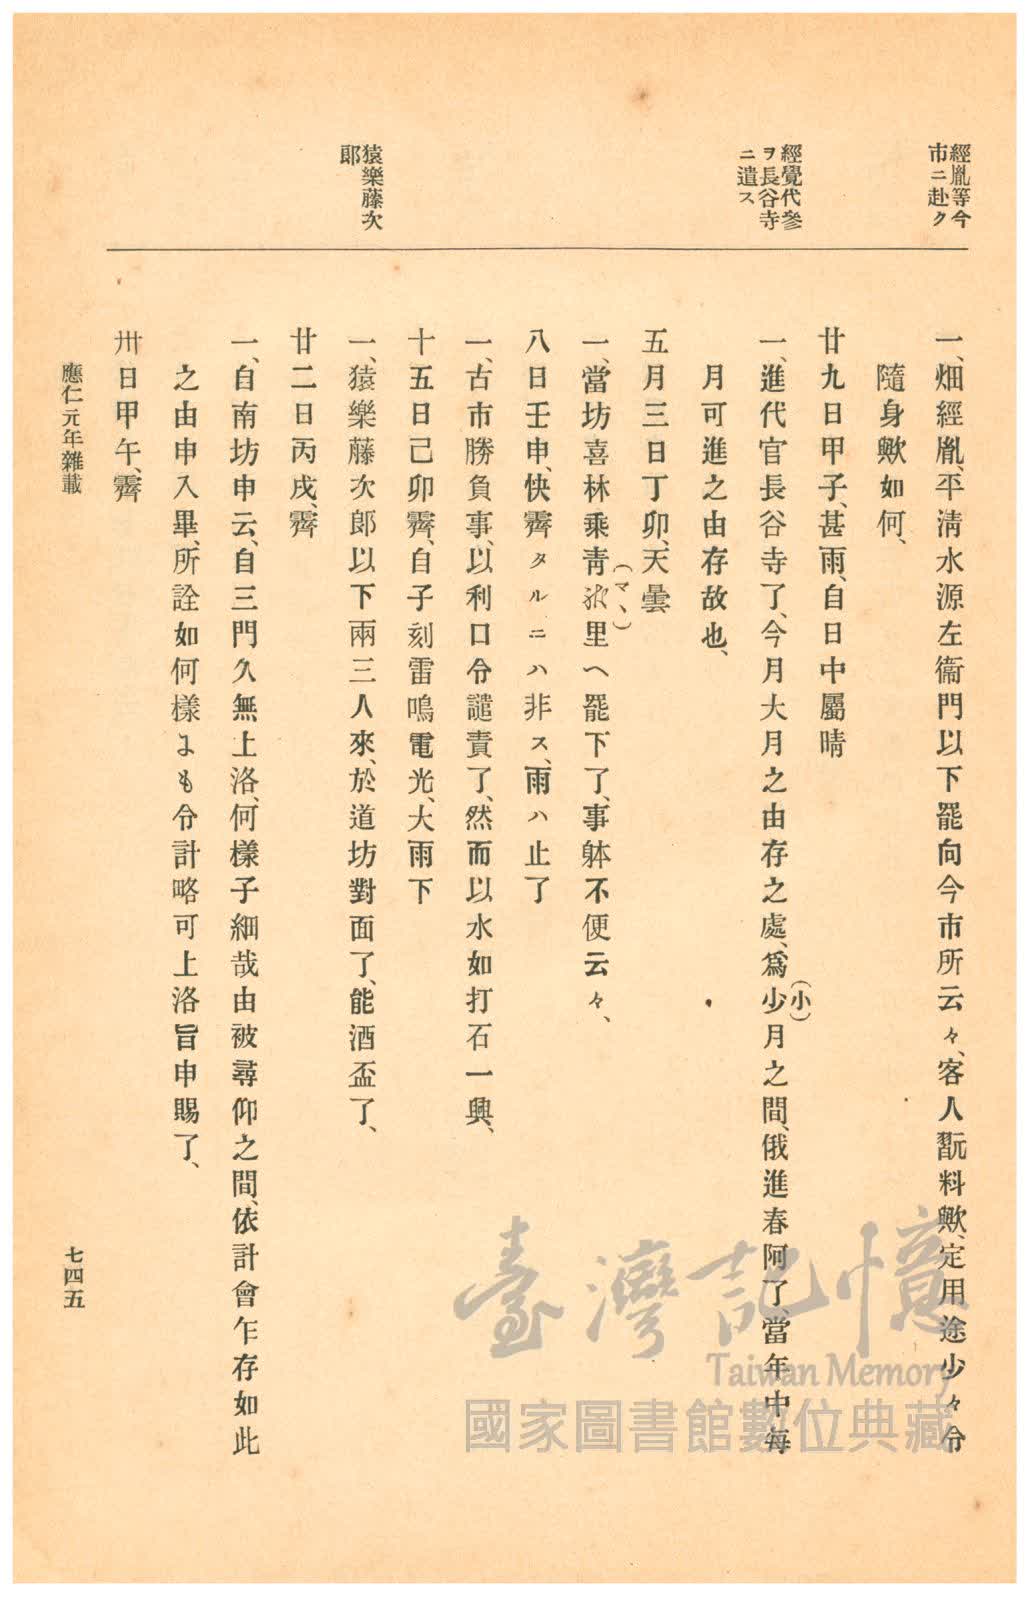 經胤等今
市ニ赴ク
經覺代參
ヲ長谷寺
ニ遣ス
猿樂藤次
郎
一、畑經胤、平淸水源左衞門以下罷向今市所云々、客人翫料歟、定用途少々令
隨身歟如何、
廿九日甲子、甚雨、自日中屬晴
一、進代官長谷寺了、今月大月之由存之處、爲少(小)月之間、俄進春阿了、當年中每
月可進之由存故也、
五月三日丁卯、天曇
一、當坊喜林乘靑(マヽ)里へ罷下了、事躰不便云々、
八日壬申、快霽タルニハ非ス、雨ハ止了
一、古市勝負事、以利口令譴責了、然而以水如打石一興、
十五日己卯霽、自子刻雷鳴電光、大雨下
一、猿樂藤次郎以下兩三人來、於道坊對面了、能酒盃了、
廿二日丙戌、霽
一、自南坊申云、自三門久無上洛、何樣子細哉由被尋仰之間、依計會乍存如此
之由申入畢、所詮如何樣ニも令計略可上洛旨申賜了、
卅日甲午、霽
應仁元年雜載
七四五
臺灣記憶
Taiwan Memory
國家圖書館數位典藏